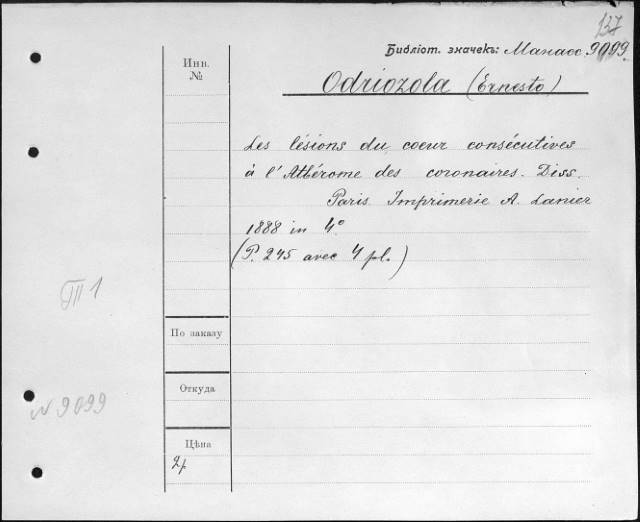 137
Библіот. значекъ: Манасс. 9099.
Инв.
№
Odriozola (Ernesto)
Les lésions du coeur consécutives
à l'Athérome des coronaires. Diss.
Paris. Imprimerie A. Lanier
1888 in 4°
(P. 245 avec 4 pl.)
ГП 1
По заказу
Откуда
N 9099
Цѣна
2р